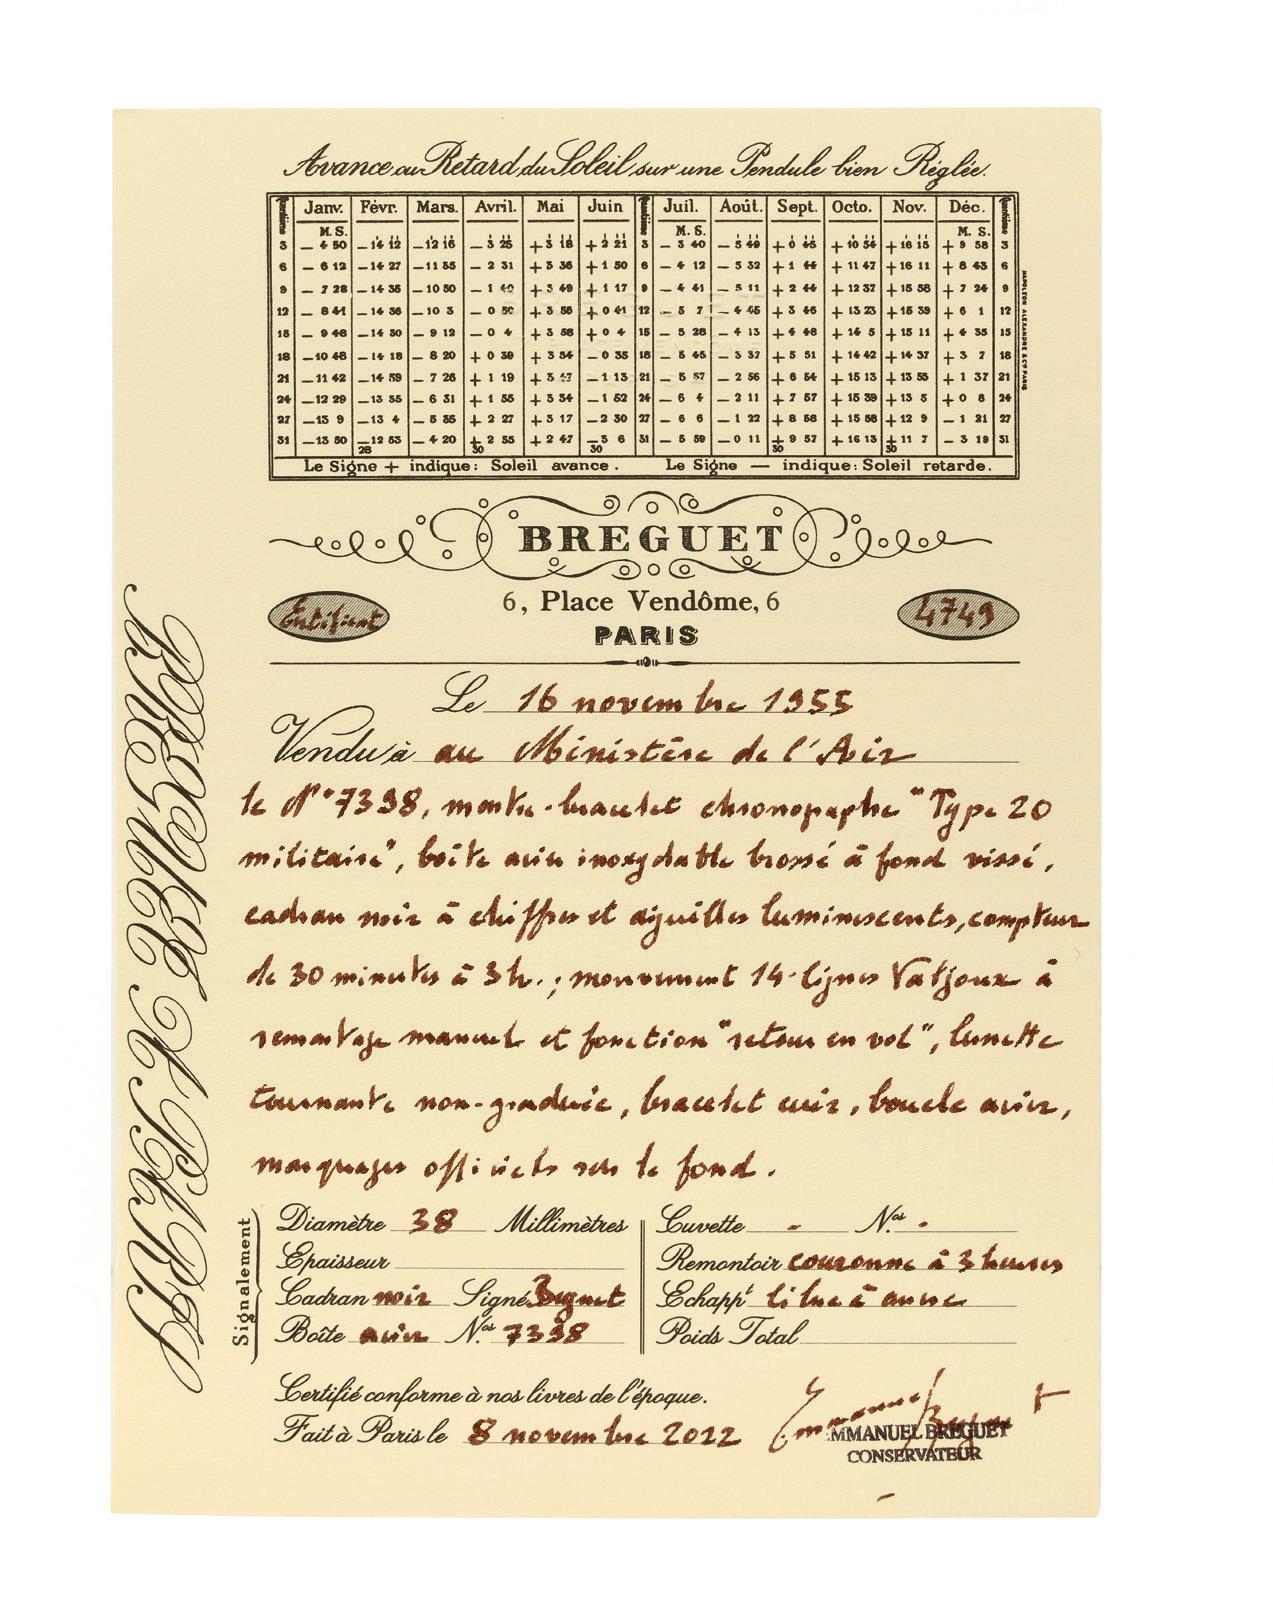 Avance ou Retard du Soleil sur une Pendule bien Réglée.
Quantième Janv. Févr. Mars. Avril. Mai Juin Quantième Juil. Août. Sept. Octo. Nov. Déc. Quantième
M. S. M. S. M. S.
3 — 4 50 —14 12 —12 16 — 3 25 +3 18 +2 21 3 — 3 40 — 5 49 +0 45 +10 54 +16 15 +9 58 3
6 — 6 12 —14 27 —11 55 — 2 31 +3 36 +1 50 6 — 4 12 — 5 32 +1 44 +11 47 +16 11 +8 43 6
9 — 7 28 —14 35 —10 50 — 1 40 +3 49 +1 17 9 — 4 41 — 5 11 +2 44 +12 37 +15 58 +7 24 9
12 — 8 41 —14 36 —10 3 — 0 50 +3 56 +0 41 12 — 5 7 — 4 45 +3 46 +13 23 +15 39 +6 1 12
15 — 9 46 —14 30 — 9 12 — 0 4 +3 58 +0 4 15 — 5 28 — 4 13 +4 48 +14 5 +15 11 +4 35 15
18 —10 46 —14 18 — 8 20 +0 39 +3 54 —0 35 18 — 5 45 — 3 37 +5 51 +14 42 +14 37 +3 7 18
21 —11 42 —14 59 — 7 26 +1 19 +3 47 —1 13 21 — 5 57 — 2 56 +6 54 +15 13 +13 55 +1 37 21
24 —12 29 —13 35 — 6 31 +1 55 +3 34 —1 52 24 — 6 4 — 2 11 +7 57 +15 39 +13 5 +0 8 24
27 —13 9 —13 4 — 5 35 +2 27 +3 17 —2 30 27 — 6 6 — 1 22 +8 58 +15 58 +12 9 — 1 21 27
31 —13 50 —12 53 — 4 20 +2 55 +2 47 —3 6 31 — 5 59 — 0 11 +9 57 +16 13 +11 7 — 3 19 31
28 30 30 30 30
Le Signe + indique: Soleil avance. Le Signe — indique: Soleil retarde.
NAPOLÉON ALEXANDRE & Cº PARIS
BREGUET
Certificat 6, Place Vendôme, 6 4749
PARIS
BREGUET A PARIS
Le 16 novembre 1955
Vendu à au Ministère de l'Air
le N° 7398, montre-bracelet chronographe "Type 20
militaire", boîte acier inoxydable brossé à fond vissé,
cadran noir à chiffres et aiguilles luminescents, compteur
de 30 minutes à 3 h. ; mouvement 14 lignes Valjoux à
remontage manuel et fonction "retour en vol", lunette
tournante non-graduée, bracelet cuir, boucle acier,
marquages officiels sur le fond.
Signalement
Diamètre 38 Millimètres Cuvette - Nos -
Epaisseur Remontoir couronne à 3 heures
Cadran noir Signé Breguet Echappt ligne à ancre
Boîte acier Nos 7398 Poids Total
Certifié conforme à nos livres de l'époque.
Fait à Paris le 8 novembre 2022 Emmanuel Breguet
EMMANUEL BREGUET
CONSERVATEUR